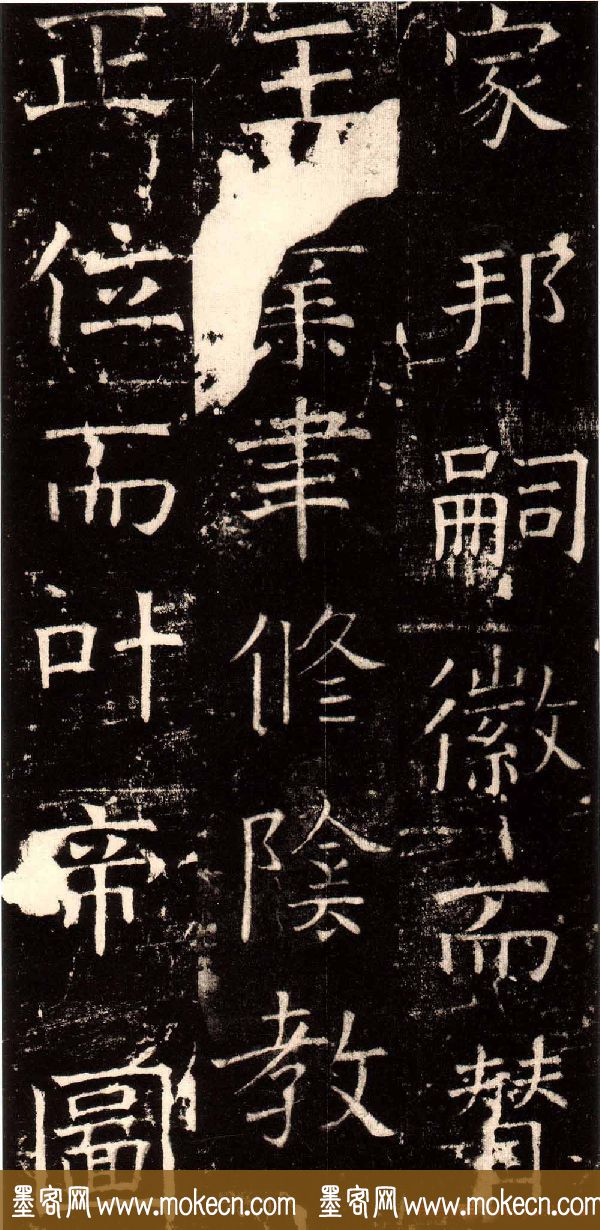 家邦嗣徽而贊
王業聿修陰教
正位而叶帝圖
墨客网 www.mokecn.com 墨客网 www.mokecn.com